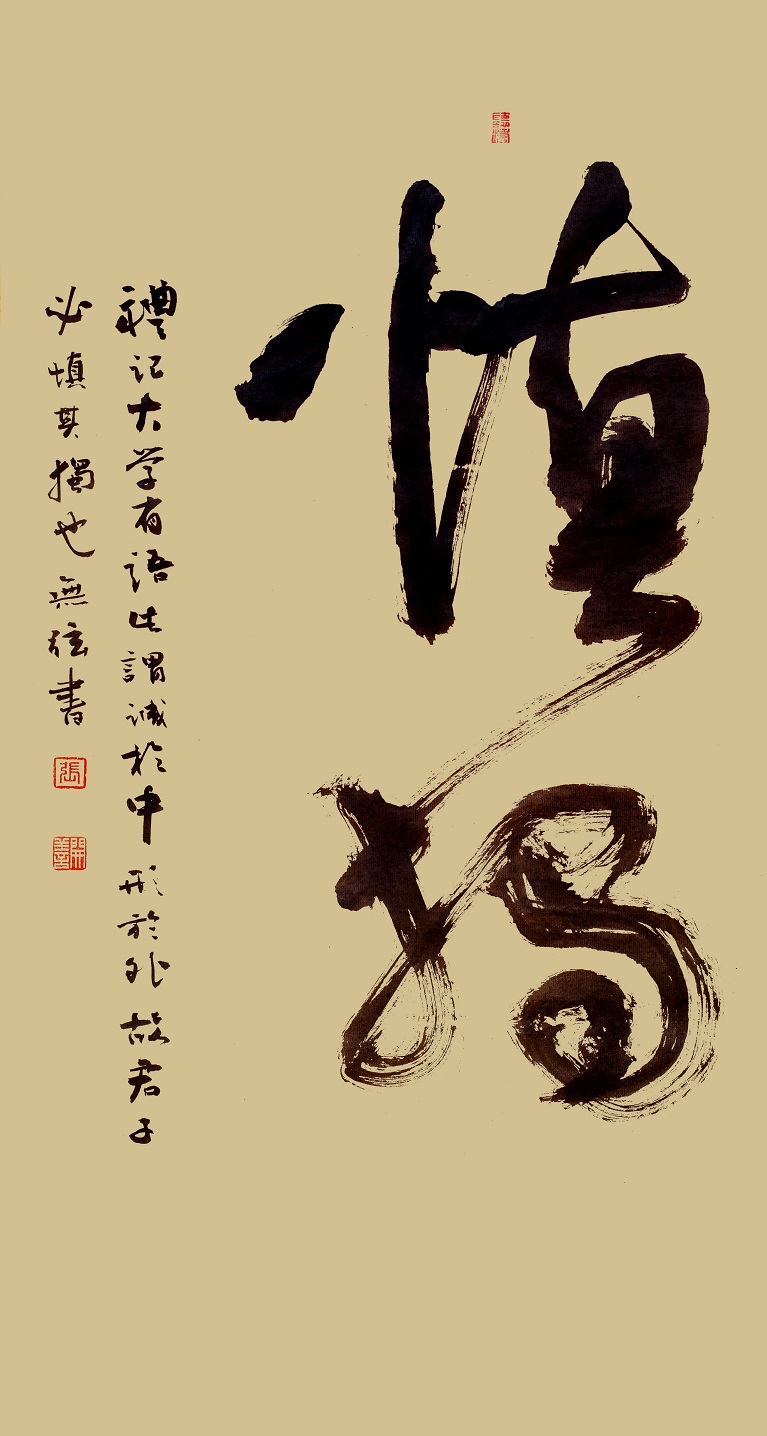 慎獨
禮記大学有語此謂誠於中形於外故君子
必慎其獨也無弦書
張